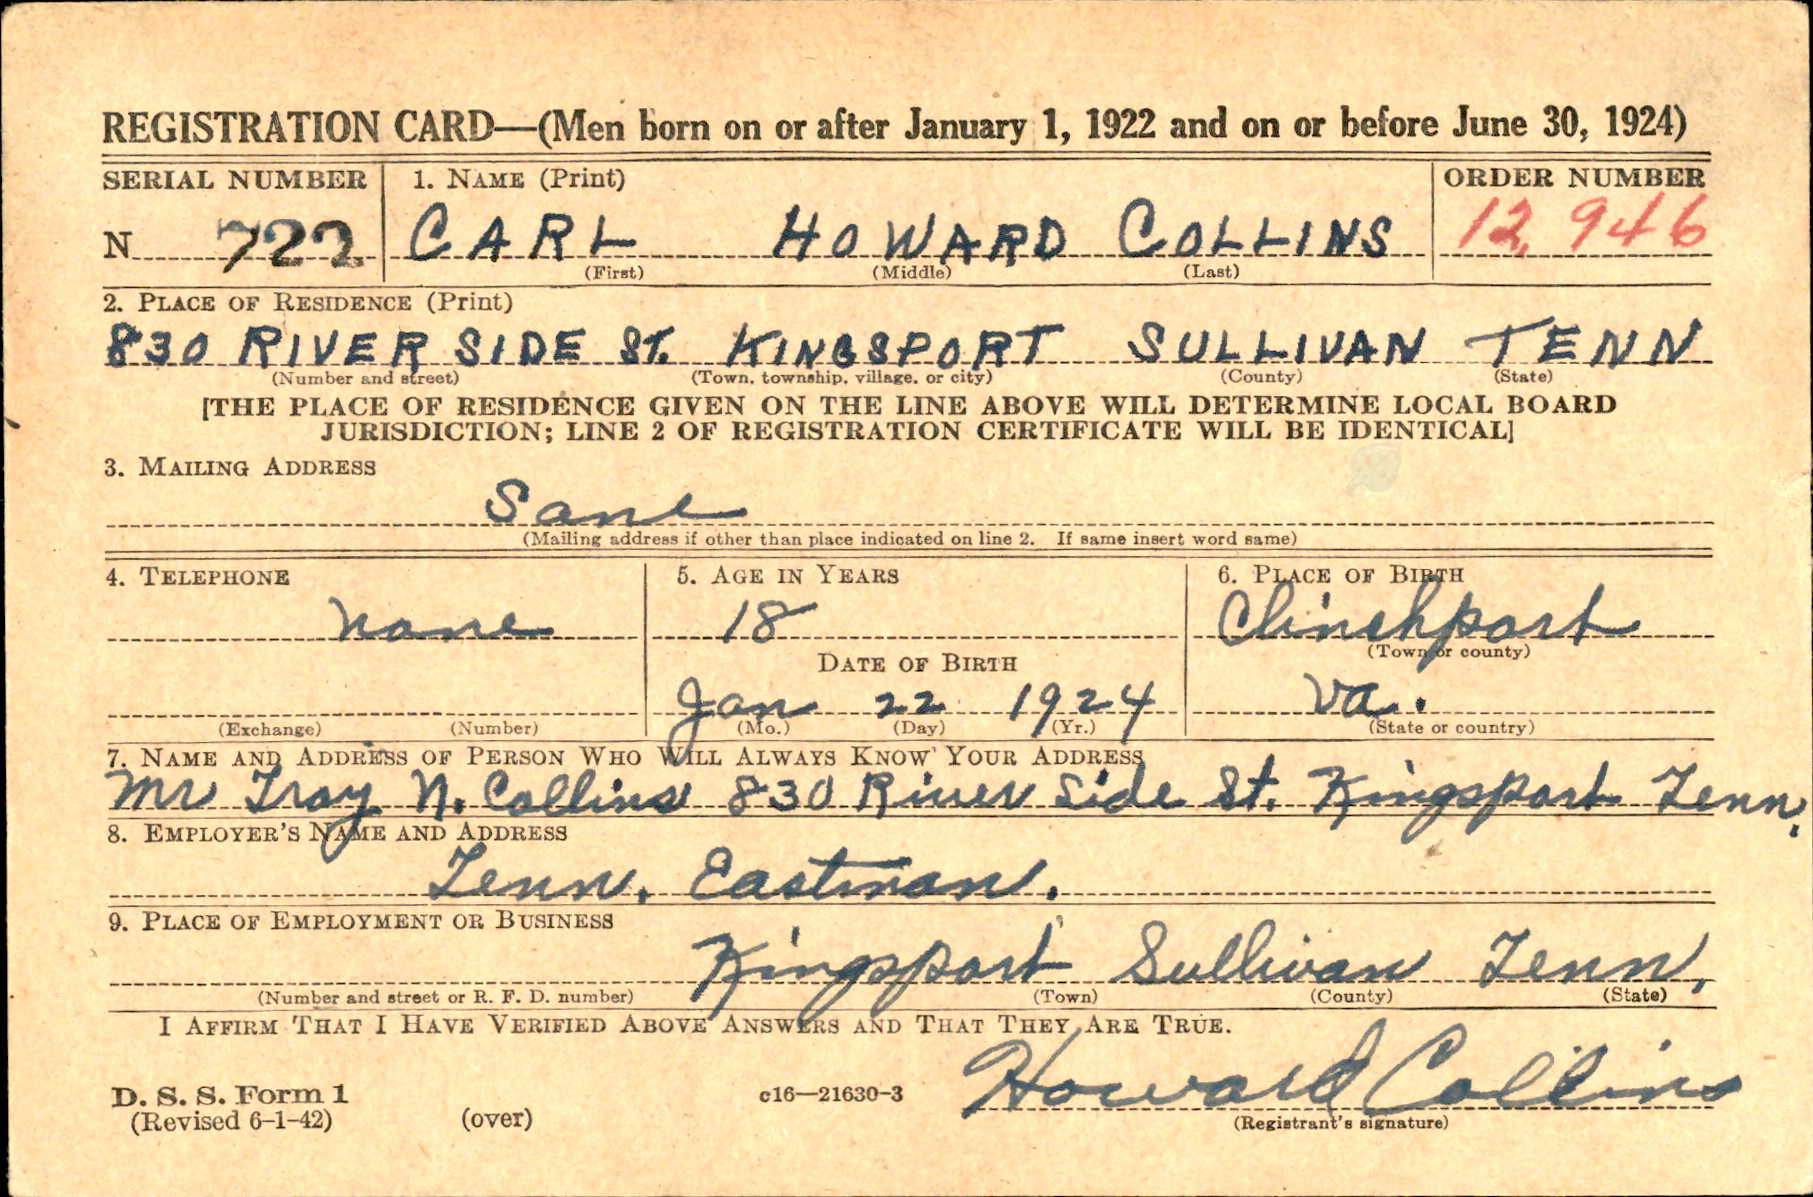 REGISTRATION CARD—(Men born on or after January 1, 1922 and on or before June 30, 1924)
SERIAL NUMBER 1. NAME (Print) ORDER NUMBER
N 722 CARL HOWARD COLLINS 12,946
(First) (Middle) (Last)
2. PLACE OF RESIDENCE (Print)
830 RIVER SIDE ST. KINGSPORT SULLIVAN TENN
(Number and street) (Town, township, village, or city) (County) (State)
[THE PLACE OF RESIDENCE GIVEN ON THE LINE ABOVE WILL DETERMINE LOCAL BOARD
JURISDICTION; LINE 2 OF REGISTRATION CERTIFICATE WILL BE IDENTICAL]
3. MAILING ADDRESS
Same
(Mailing address if other than place indicated on line 2. If same insert word same)
4. TELEPHONE 5. AGE IN YEARS 6. PLACE OF BIRTH
none 18 Clinchport
(Town or county)
DATE OF BIRTH
Jan 22 1924 Va.
(Exchange) (Number) (Mo.) (Day) (Yr.) (State or country)
7. NAME AND ADDRESS OF PERSON WHO WILL ALWAYS KNOW YOUR ADDRESS
Mr Troy N. Collins 830 River Side St. Kingsport Tenn.
8. EMPLOYER'S NAME AND ADDRESS
Tenn. Eastman.
9. PLACE OF EMPLOYMENT OR BUSINESS
Kingsport Sullivan Tenn.
(Number and street or R. F. D. number) (Town) (County) (State)
I AFFIRM THAT I HAVE VERIFIED ABOVE ANSWERS AND THAT THEY ARE TRUE.
Howard Collins
D. S. S. Form 1 c16—21630-3
(Revised 6-1-42) (over) (Registrant's signature)